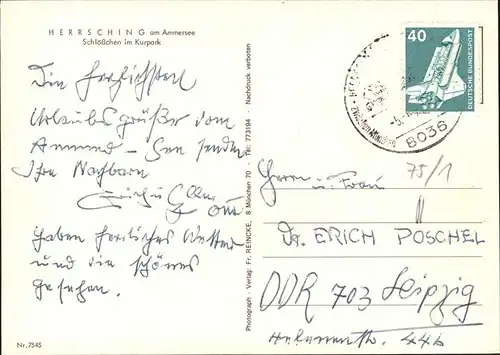 HERRSCHING am Ammersee
Schlößchen im Kurpark
Die herzlichsten
Urlaubsgrüße vom
Ammer-See senden
Ihre Nachbarn
haben herrliches Wetter
und die schönes
gesehen.
Nr. 7845
Photograph · Verlag: Fr. REINCKE, 8 München 70 · Tel: 773194 · Nachdruck verboten
40
DEUTSCHE BUNDESPOST
8036
75/1
Herrn
u. Frau
Dr. ERICH POSCHEL
DDR 703 Leipzig
44b